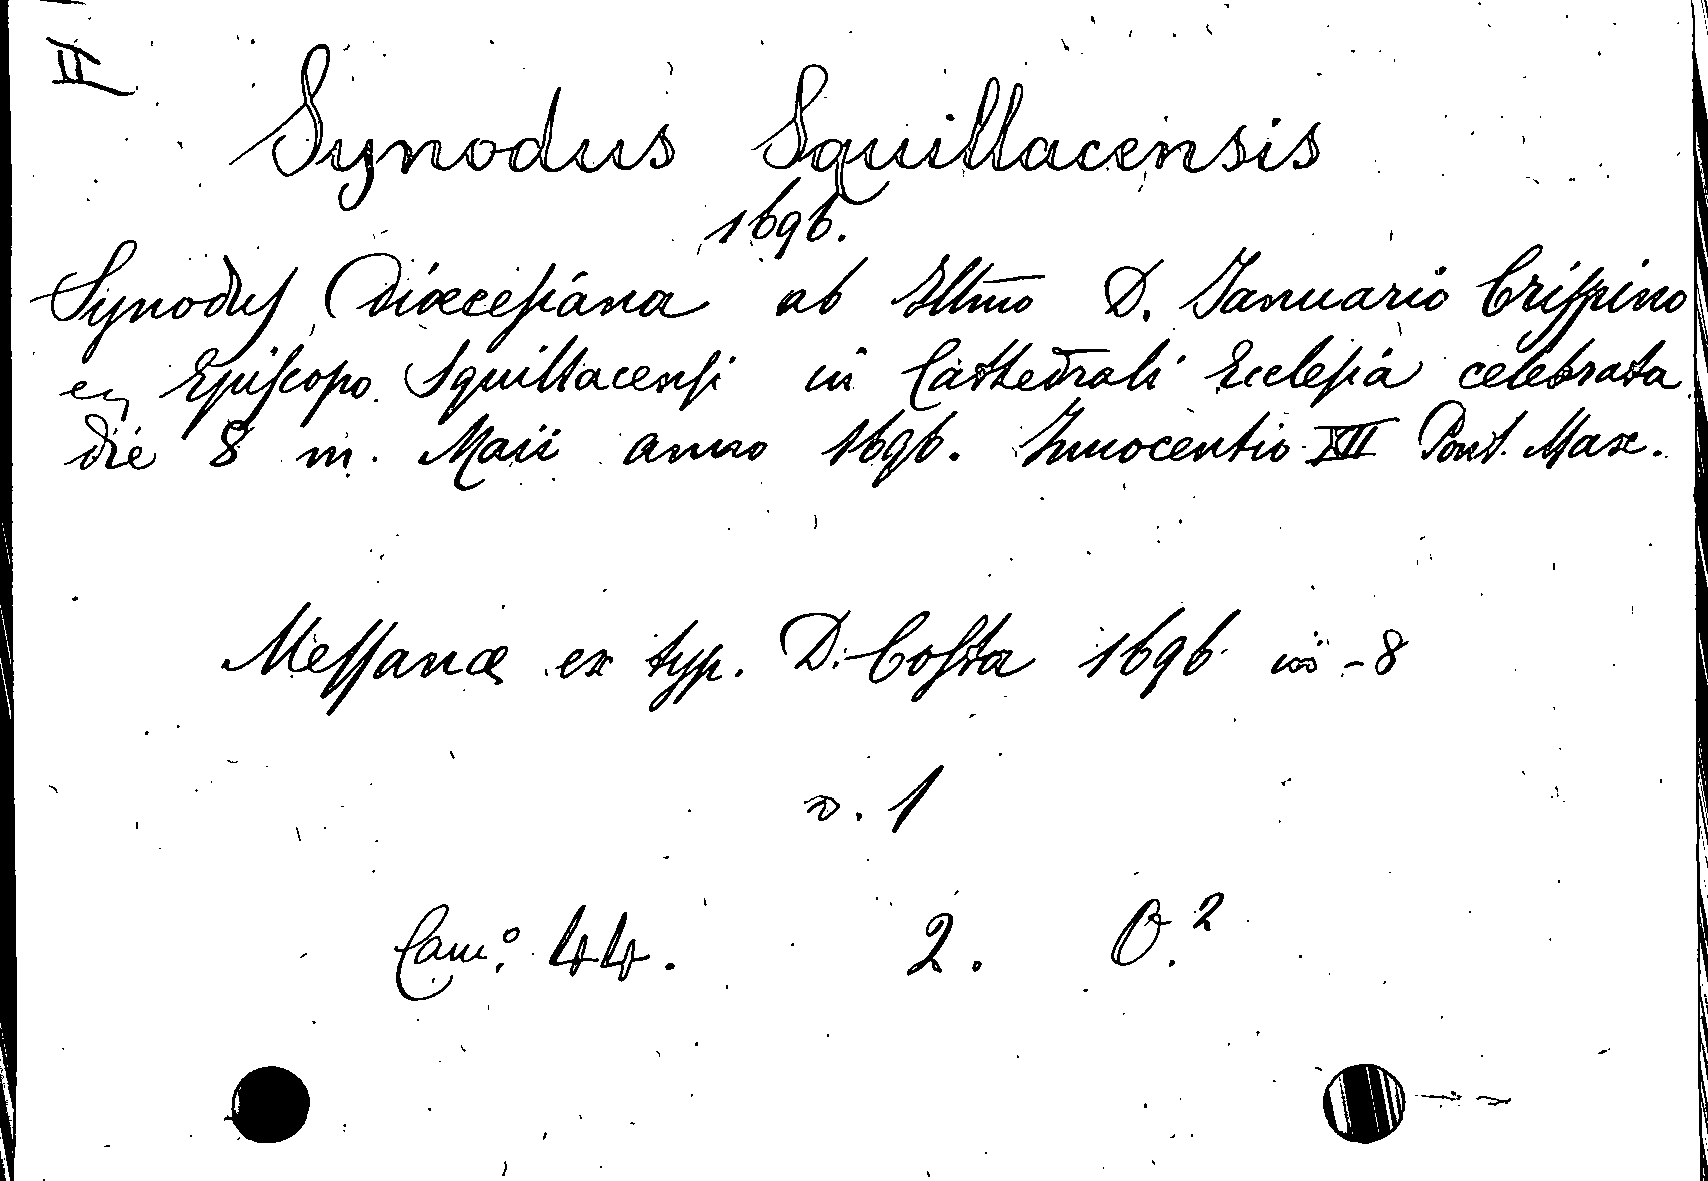 II
Synodus Squillacensis
1696.
Synodus Diœcesana ab Illmo D. Januario Crispino
Episcopo Squillacensi in Cathedrali Ecclesia celebrata
die 8 m. Maii anno 1696. Innocentio XII Pont. Max.
Messanæ ex typ. D. Costa 1696 in-8
v. 1
Cam.º 44. 2. O.²